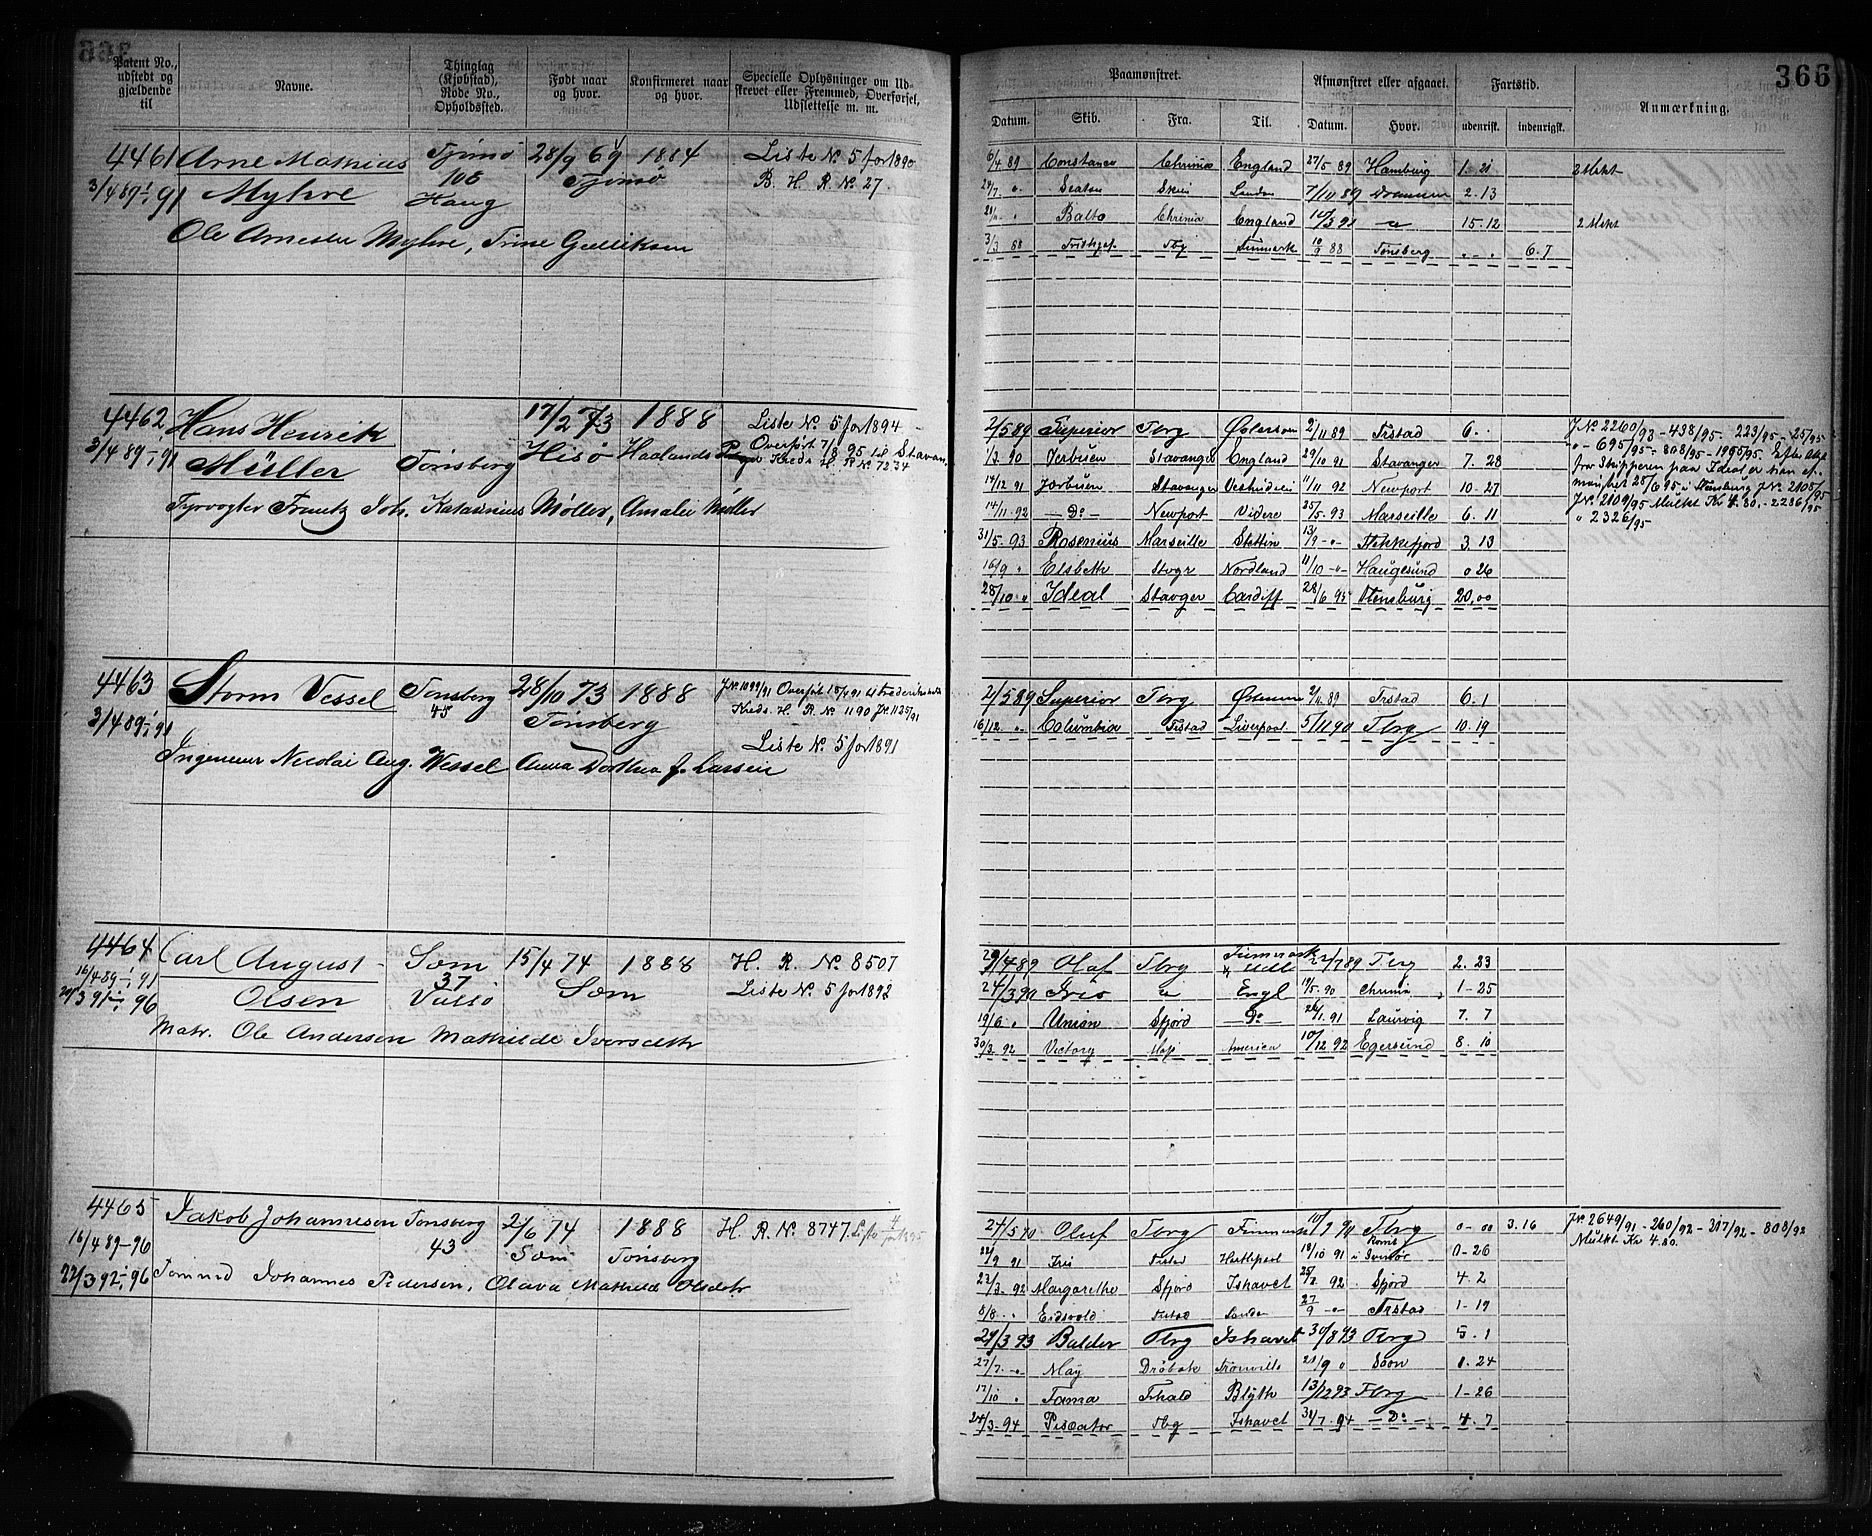 366
Patent No., udstedt og gjældende til
Navne.
Thinglag (Kjøbstad), Rode No. Opholdssted.
Født naar og hvor.
Konfirmeret naar og hvor.
Specielle Oplysninger om Udskrevet eller Fremmed, Overførsel, Udslettelse m. m.
Paamønstret.
Afmønstret eller afgaaet.
Fartstid.
Anmærkning.
Datum. Skib. Fra. Til. Datum. Hvor. udenrigsk. indenrigsk.
4461 Arne Mathias Tjömö 28/9 69 1884 Liste No 5 for 1890
3/4 89 - 91 Myhre 108 Haug Tjömö B. H. R. No 27.
Ole Arnesen Myhre, Trine Gulliksen
6/4 89 Constance Chrnia England 27/5 89 Hamburg 1-21 2 Mskt
24/7 " Skien London 7/11 89 Drammen 2.13
Balto Chrnia England 10/3 91 15-12
3/3 88 Tbg Finmark 10/9 88 Tønsberg " - " 6.7
4462 Hans Henrik 17/2 73 1888 Liste No 5 for 1894
3/4 89 - 91 Müller Tönsberg Hisö Haalands Overført 7/8 95 til Stavan. Kreds H. R. No 7234
Fyrvogter Frantz Joh. Katarinius Möller, Amalie Müller
2/5 89 Superior Tbrg 2/11 89 Frstad 6.
1/3 90 Jerbuen Stavanger England 29/10 91 Stavanger 7. 28
14/12 91 Jærbuen Stavanger 11/11 92 Newport 10-27
14/11-92 - Do - Newport Videre 25/5-93 Marseille 6. 11
31/5-93 Rosenius Marseille Stettin 13/9 -"- Flekkefjord 3. 13
16/9 " Elsbeth Stvgr Nordland 11/10 -"- Haugesund 0 26
28/10 " Ideal Stavger Cardiff 28/6 95 Flensburg 20,00
J No 2260/93 - 438/95 - 223/95 - 25/95
" 695/95 - 808/95 - 1995/95.
fra Skipperen paa Ideal
J.No. 2109/95 Mulkt Kr 4.80. - 2286/95
" 2326/95
4463 Storm Vessel Tönsberg 28/10 73 1888 J.No 1099/91 Overført 18/4 91 til Frederikshalds
3/4 89 - 91 45 Tönsberg Kreds. H. R. No 1190 J.No 1125/91
Liste No 5 for 1891
Ingeneur Nicolai Aug. Wessel Anna Dorthea f. Larsen
2/5 89 Superior Tbrg 2/11 89 Frstad 6. 1
16/12. " Columbia Frstad Liverpool 5/11 90 Tbrg 10. 19
4464 Carl August Sæm 15/4 74 1888 H. R. No 8507
16/4 89 - 91 Olsen 37 Vallö Sæm Liste No 5 for 1892
24/3 91 - 96
Matr. Ole Andersen Mathilde Iversdttr
29/4 89 Olaf Tbrg 2/7 89 Tbrg 2. 23
24/3 90 Iris Engl 17/5 90 Chrnia 1-25
19/6 " Union Sfjord Do 26/1.91 Laurvig 7. 7
30/3 92 Victory America 10/12 92 Egersund 8. 10
4465 Jakob Johannesen Tonsberg 2/6 74 1888 H. R. No 8747. Liste 4 for 1895
16/4 89-96 43 Sæm Tönsberg
22/3 92 - 96 Tømmd Johannes Pedersen, Olava Mathilde Olsdtr
24/5 90 Oluf Tbrg Finmark 10/9 90 Tbrg 0-00 3.16
22/9 91 Iris Frstad Hartlepool 19/10 91 0-26
23/3-92 Margarethe Sfjord Ishavet 25/7 92 Sfjord 4. 2
8/8 - " Eidsvold Frstad London 27/9 -"- Frstad 1-19
29/3 93 Balder Tbrg Ishavet 30/8 93 Tbrg 5. 1
27/7. " May Dröbak 21/9 " Soon 1. 24
17/10 " Fama Frhald Blyth 13/12 93 Tbrg 1-26
24/3-94 Piscator Tbg Ishavet 31/7. 94 - Do - 4. 7
J.No 2649/91 - 260/92 - 317/92 - 808/92
Mulkt Kr 4.80.